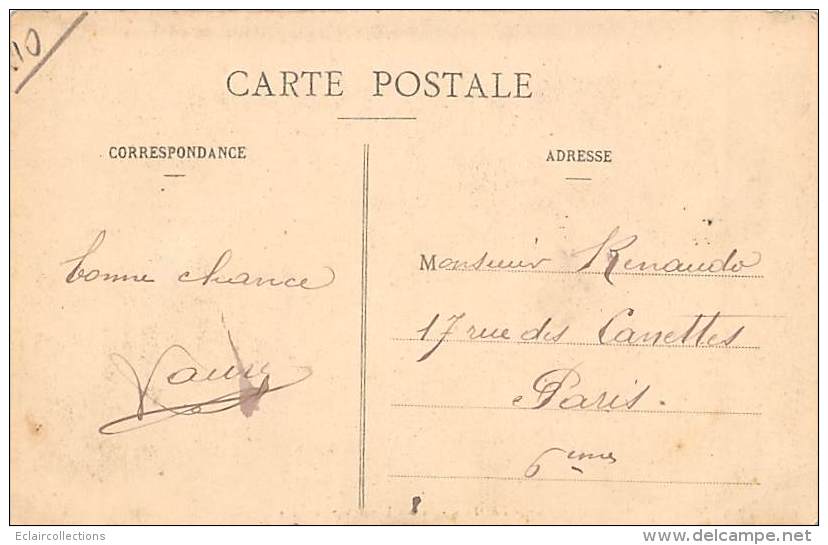 10
CARTE POSTALE
CORRESPONDANCE
ADRESSE
bonne chance
Monsieur Renaudo
17 rue des Canettes
Paris.
6ème
Eclaircollections
www.delcampe.net